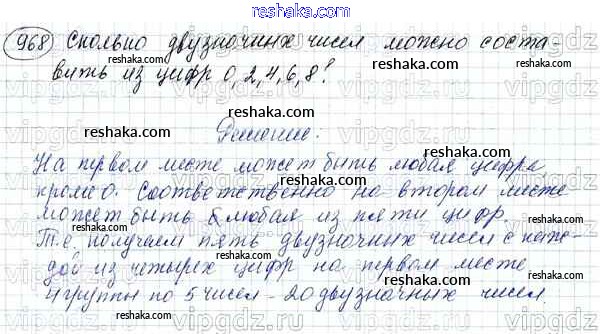 reshaka.com
968 Сколько двузначных чисел можно соста-
reshaka.com reshaka.com
вить из цифр 0, 2, 4, 6, 8?
reshaka.com
Решение:
reshaka.com
На первом месте может быть любая цифра,
кроме 0. Соответственно на втором месте
может быть любая из пяти цифр.
reshaka.com reshaka.com
Т.е. получаем пять двузначных чисел с каж-
дой из четырех цифр на первом месте
reshaka.com reshaka.com
4 группы по 5 чисел - 20 двузначных чисел.
reshaka.com